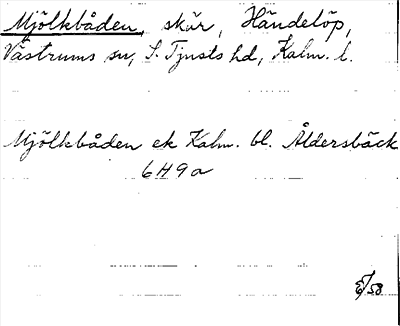 Mjölkbåden, skär, Händelöp,
Västrums sn, S. Tjusts hd, Kalm. l.
Mjölkbåden ek Kalm. bl. Åldersbäck
6H9a
/58